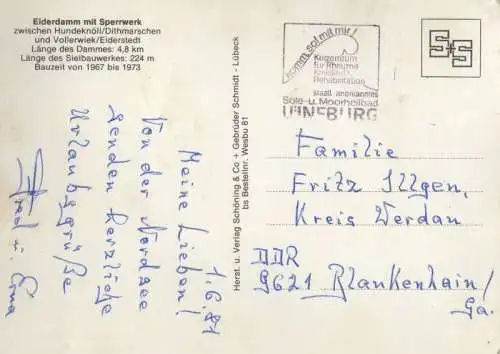 Eiderdamm mit Sperrwerk
zwischen Hundeknöll/Dithmarschen
und Vollerwiek/Eiderstedt
Länge des Dammes: 4,8 km
Länge des Sielbauwerkes: 224 m
Bauzeit von 1967 bis 1973
1.6.81
Meine Lieben!
Von der Nordsee
senden herzliche
Urlaubsgrüße
Fred u. Erna
Herst. u. Verlag Schöning & Co + Gebrüder Schmidt - Lübeck
bs Bestellnr. Wesbu 81
komm, sol mit mir!
Kurzentrum
für Rheuma
Rehabilitation
staatl. anerkanntes
Sole- u. Moorheilbad
LÜNEBURG
S+S
Familie
Fritz Illgen,
Kreis Werdau
DDR
9621 Blankenhain/
Ga.